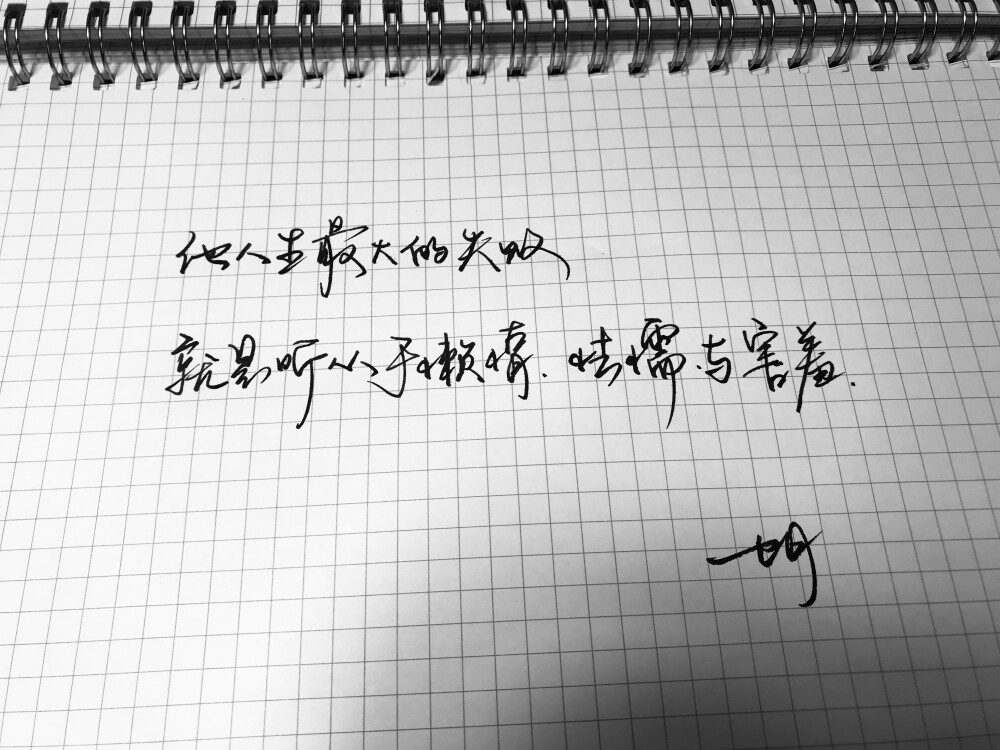 他人生最大的失败
就是听从于懒惰.怯懦与害羞.